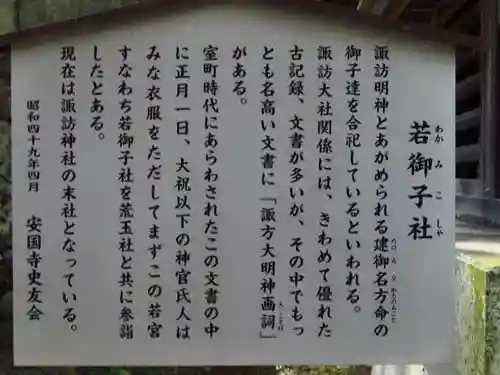 若御子社
わか み こ しゃ
諏訪明神とあがめられる建御名方命の
たけ み な かたのみこと
御子達を合祀しているといわれる。
諏訪大社関係には、きわめて優れた
古記録、文書が多いが、その中でもっ
とも名高い文書に「諏方大明神画詞」
え ことば
がある。
室町時代にあらわされたこの文書の中
に正月一日、大祝以下の神官氏人は
みな衣服をただしてまずこの若宮
すなわち若御子社を荒玉社と共に参詣
したとある。
現在は諏訪神社の末社となっている。
昭和四十九年四月 安国寺史友会